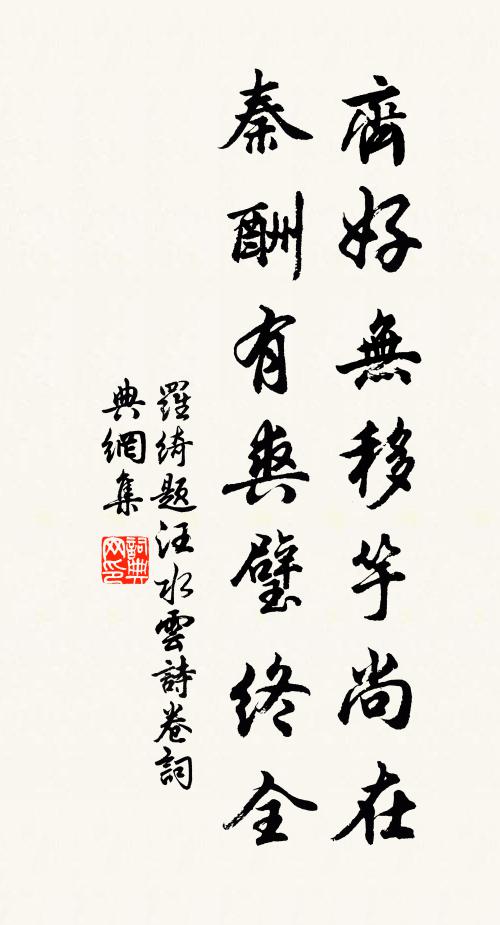 齊好無移竽尚在
秦酬有爽璧終全
羅綺题汪水雲詩卷詞
典網集
詞典
网印